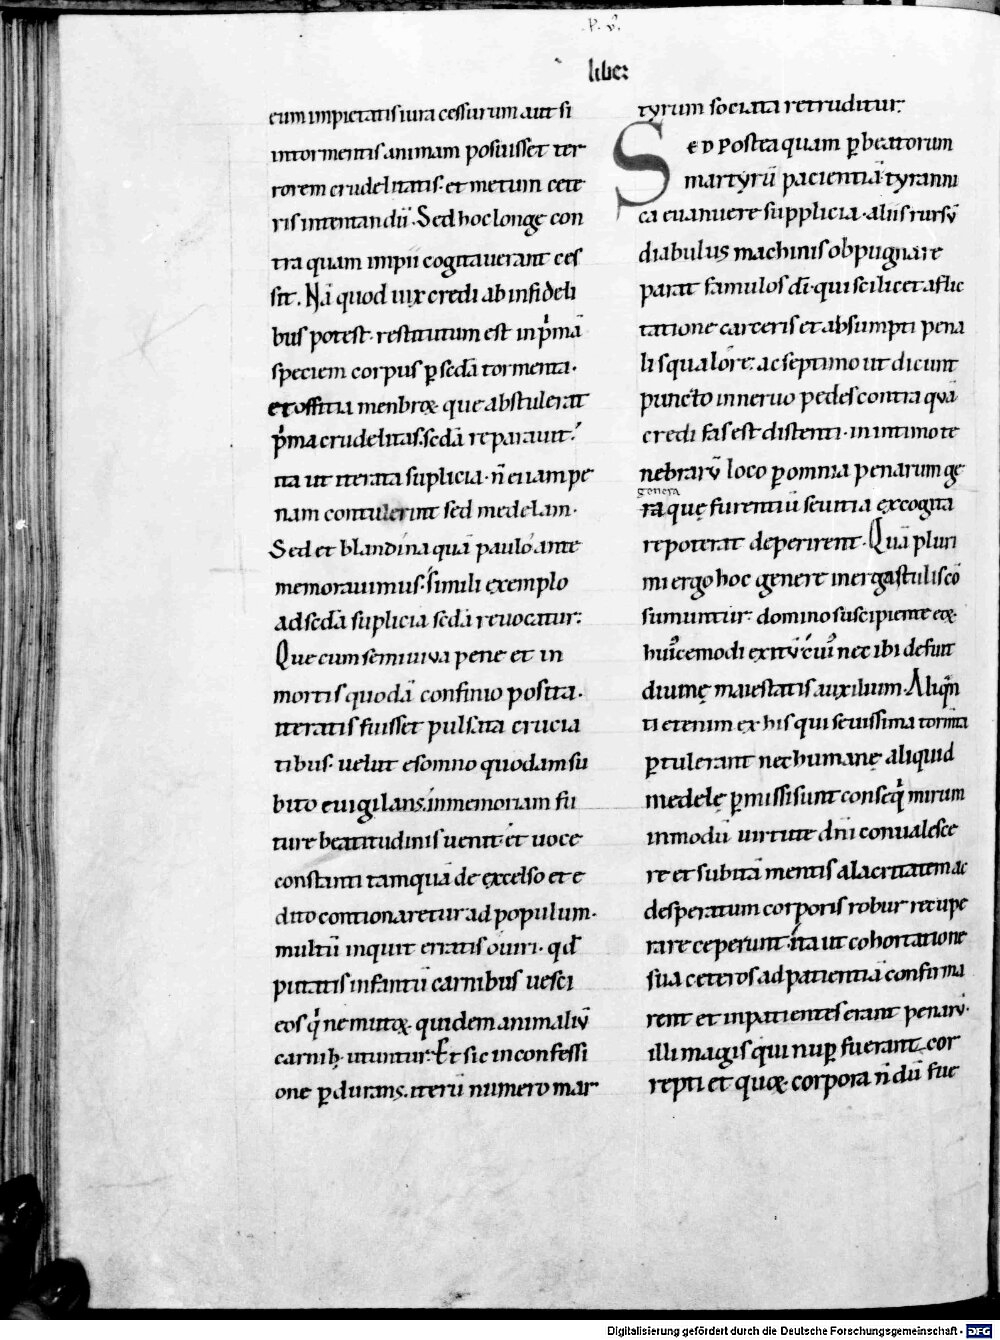 .P. V.
liber
eum impietatis iura cessurum aut si
intormentis animam posuisset ter
rorem crudelitatis· et metum cete
ris intentandū. Sed hoc longę con
tra quam impii cogitauerant ces
sit. Nā quod uix credi ab infideli
bus potest· restitutum est in pͥmā
speciem corpus ꝑ scd̄ā tormenta.
et offitia menbroꝝ que abstulerat
pͥma crudelitas. scd̄ā reparauit.
ita ut iterata suplicia· n̄ ei iam pe
nam contulerint sed medelam.
Sed et blandina quā paulo ante
memorauimus· simili exemplo
ad scd̄ā suplicia scd̄ā reuocatur:
Que cum semiuiua pene et in
mortis quodā confinio posita.
iteratis fuisset pulsata crucia
tibus· uelut esomno quodam su
bito euigilans. inmemoriam fu
turę beatitudinis uenit· et uoce
constanti tamquā de excelso et e
dito contionaretur ad populum.
multū inquit erratis ouiri. qd̄
putatis infantū carnibus uesci
eos qͥ ne mutoꝝ quidem animaliū
carnibꝫ utuntur. Et sic inconfessi
one ꝑdurans. iterū numero mar
tyrum sociata retruditur.
SED Postea quam ꝑ beatorum
martyrū pacientiā· tyranni
ca euanuere supplicia· aliis rursū
diabulus machinis obpugnare
parat famulos dī· qui scilicet aflic
tatione carceris et absumpti pena
li squalore. ac septimo ut dicunt
puncto inneruo pedes contra quā
credi fas est distenti· in intimo te
nebrarū loco ꝑ omnia penarum ge
genera
ra quę furentiū seuitia excogita
re poterat deperirent. Quā pluri
mi ergo hoc genere inergastulis cō
sumuntur· domino suscipiente ex
huiͥcemodi exitū· cuiͥ nec ibi defuit
diuinę maiestatis auxilium. Aliqn̄
ti etenim ex his qui seuissima torm̄ta
ꝑtulerant nec humanę aliquid
medelę ꝑmissi sunt conseqͥ mirum
inmodū uirtute dn̄i conualesce
re et subitā mentis alacritatem ac
desperatum corporis robur recupe
rare ceperunt· ita ut cohortatione
sua ceteros ad patientiā confirma
rent et inpatientes erant penarū·
illi magis qui nuꝑ fuerant cor
repti et quoꝝ corpora n̄ dū fue
Digitalisierung gefördert durch die Deutsche Forschungsgemeinschaft - DFG